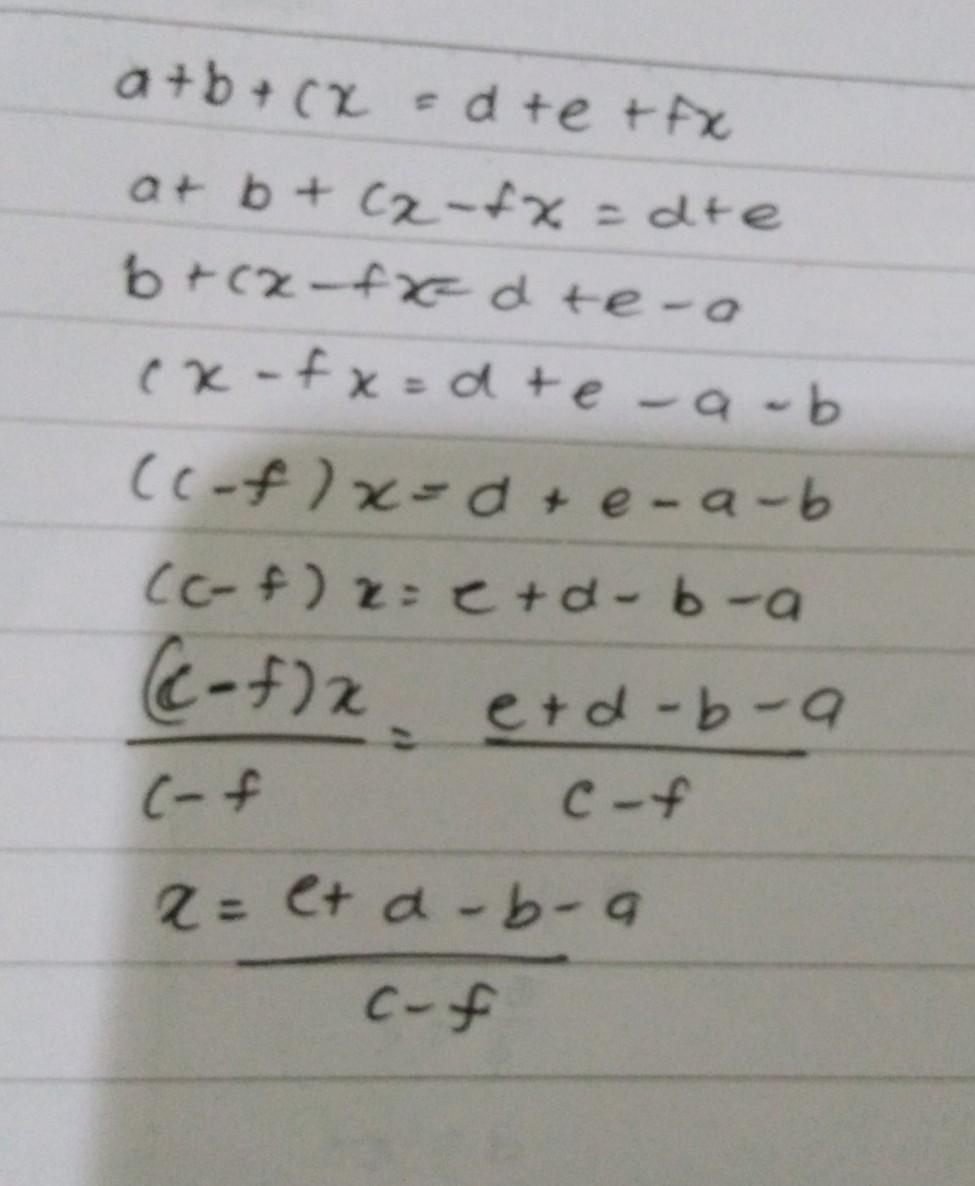 a+b+cx = d+e+fx
a+ b + cx-fx = d+e
b+cx-fx= d +e-a
cx-fx=d+e-a-b
(c-f)x=d+e-a-b
(c-f)x=e+d-b-a
(c-f)x = e+d-b-a
c-f c-f
x= e+ d-b-a
c-f